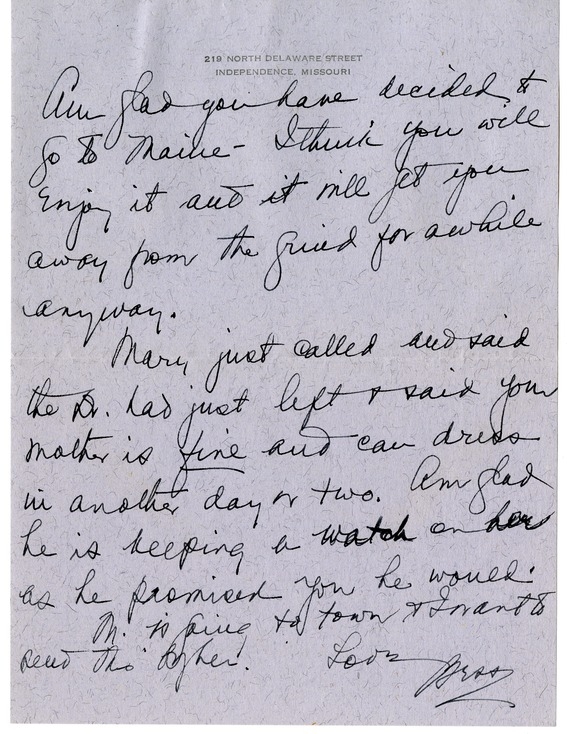 219 NORTH DELAWARE STREET
INDEPENDENCE, MISSOURI
Am glad you have decided to
go to Maine - I think you will
enjoy it and it will get you
away from the grind for awhile
anyway.
Mary just called and said
the Dr. had just left & said your
mother is fine and can dress
in another day or two. Am glad
he is keeping a watch on her
as he promised you he would.
M. is going to town & I want to
send this by her.
Love
Bess